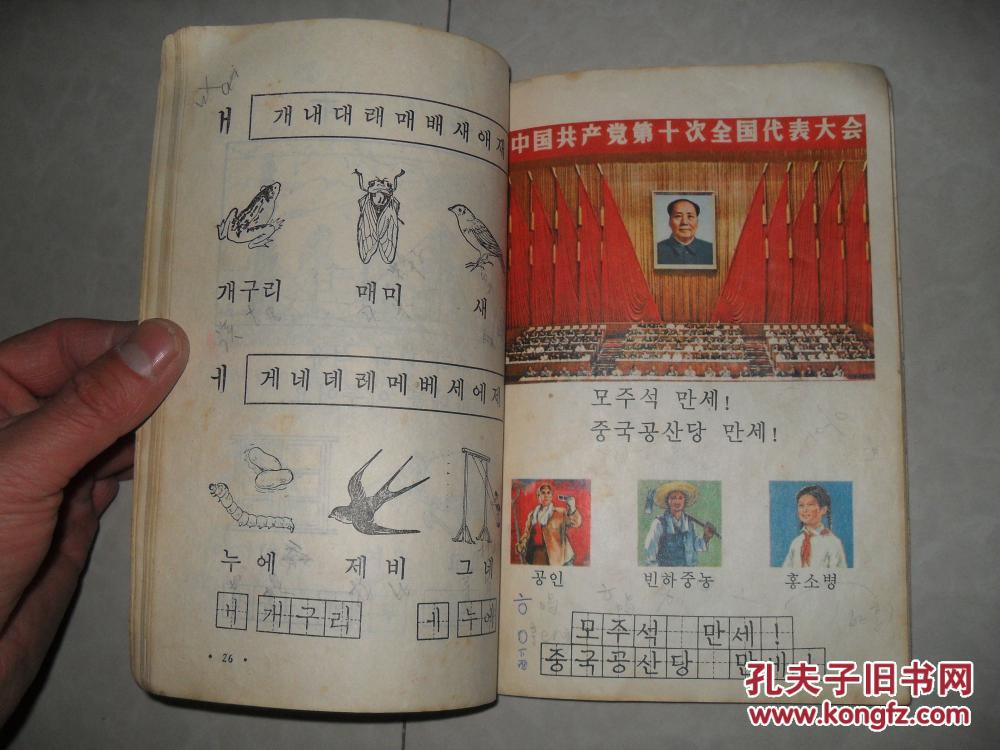 ㅐ 개내대래매배새애재
개구리 매미 새
ㅔ 게네데레메베세에제
누에 제비 그네
ㅐ 개구리 ㅔ 누에
· 26 ·
中国共产党第十次全国代表大会
모주석 만세!
중국공산당 만세!
공인 빈하중농 홍소병
모주석 만세!
중국공산당 만세!
孔夫子旧书网
www.kongfz.com